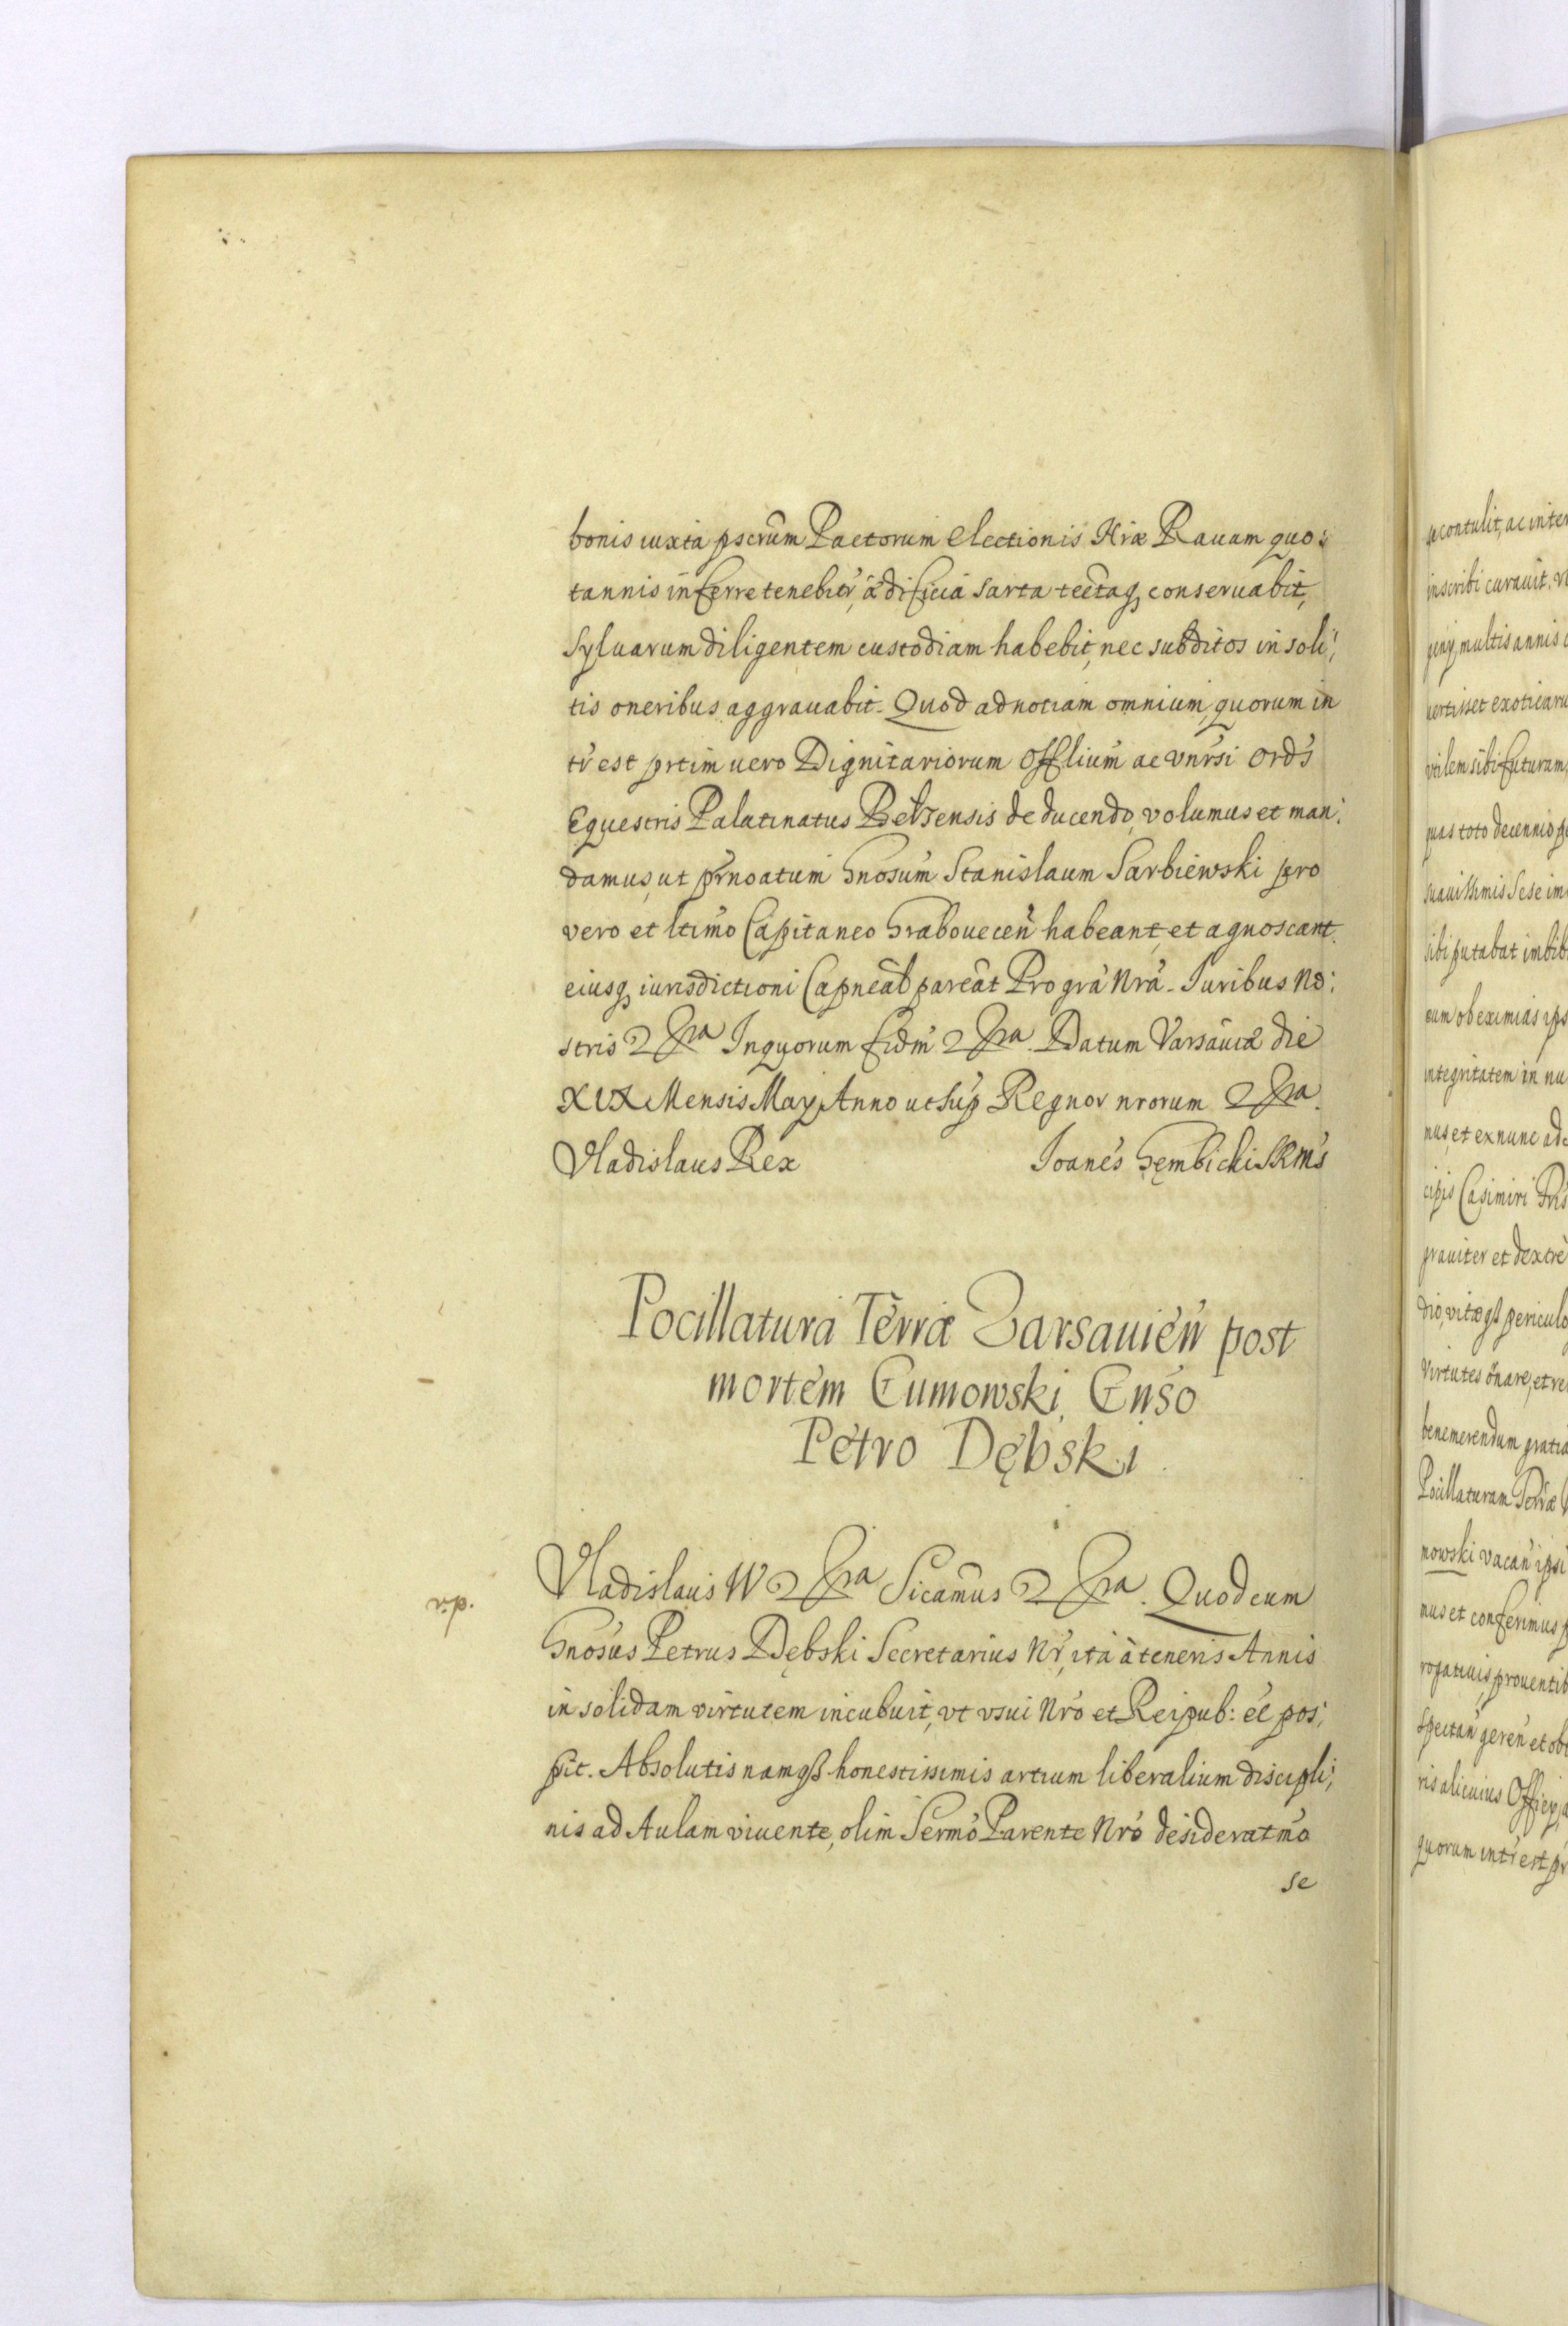 bonis iuxta pscrũm Pactorum electionis Nræ Rauam quo:
tannis inferre tenebitr, ædificia sarta tectaq conseruabit,
Syluarum diligentem custodiam habebit, nec subditos insoli:
tis oneribus aggrauabit. Quod ad notiam omnium, quorum in
tr̃ est prtim uero Dignitariorum Offlium ac vnr̃si Ords
Equestris Palatinatus Belzensis deducendo, volumus et man:
damus, ut prnoatum Gnosum Stanislaum Sarbiewski pro
vero et ltimo Capitaneo Graboueceñ habeant, et agnoscant
eiusq iurisdictioni Capneãli pareãt Pro grã Nrã. Iuribus No:
stris &ra In quorum fidm &ra. Datum Varsauiæ die
XIX Mensis Maij Anno ut sup Regnor nrorum &ra.
Vladislaus Rex Ioanes Gembicki SRMs
Pocillatura Terræ Varsauień post
mortem Gumowski, Gnso
Petro Dębski
Vladislaus IV &ra Sicamus &ra. Quod cum
r.p.
Gnosus Petrus Dębski Secretarius Nr, ita à teneris Annis
in solidam virtutem incubuit, vt vsui Nro et Reipub: eé pos:
sit. Absolutis namq honestissimis artium liberalium discipli:
nis ad Aulam viuente, olim Sermo Parente Nro desideratmo
se
se contulit, ac inter
inscribi curauit. vt
multis annis
vertisset exoticaru
vtilem sibi futuram,
quas toto decennio
suauissimis sese im
sibi putabat imbib
eum ob eximias ips
integritatem in nu
mus, et ex nunc ad
cipis Casimiri
grauiter et dextre
dio, vitæq periculo
virtutes ornare, et re
benemerendum gratia
Pocillaturam Terræ
mowski vacañ ipsi
mus et conferimus
rogatiuis, prouentib
spectañ gereñ et obt
ris alicuius Officij,
quorum intr̃ est pr